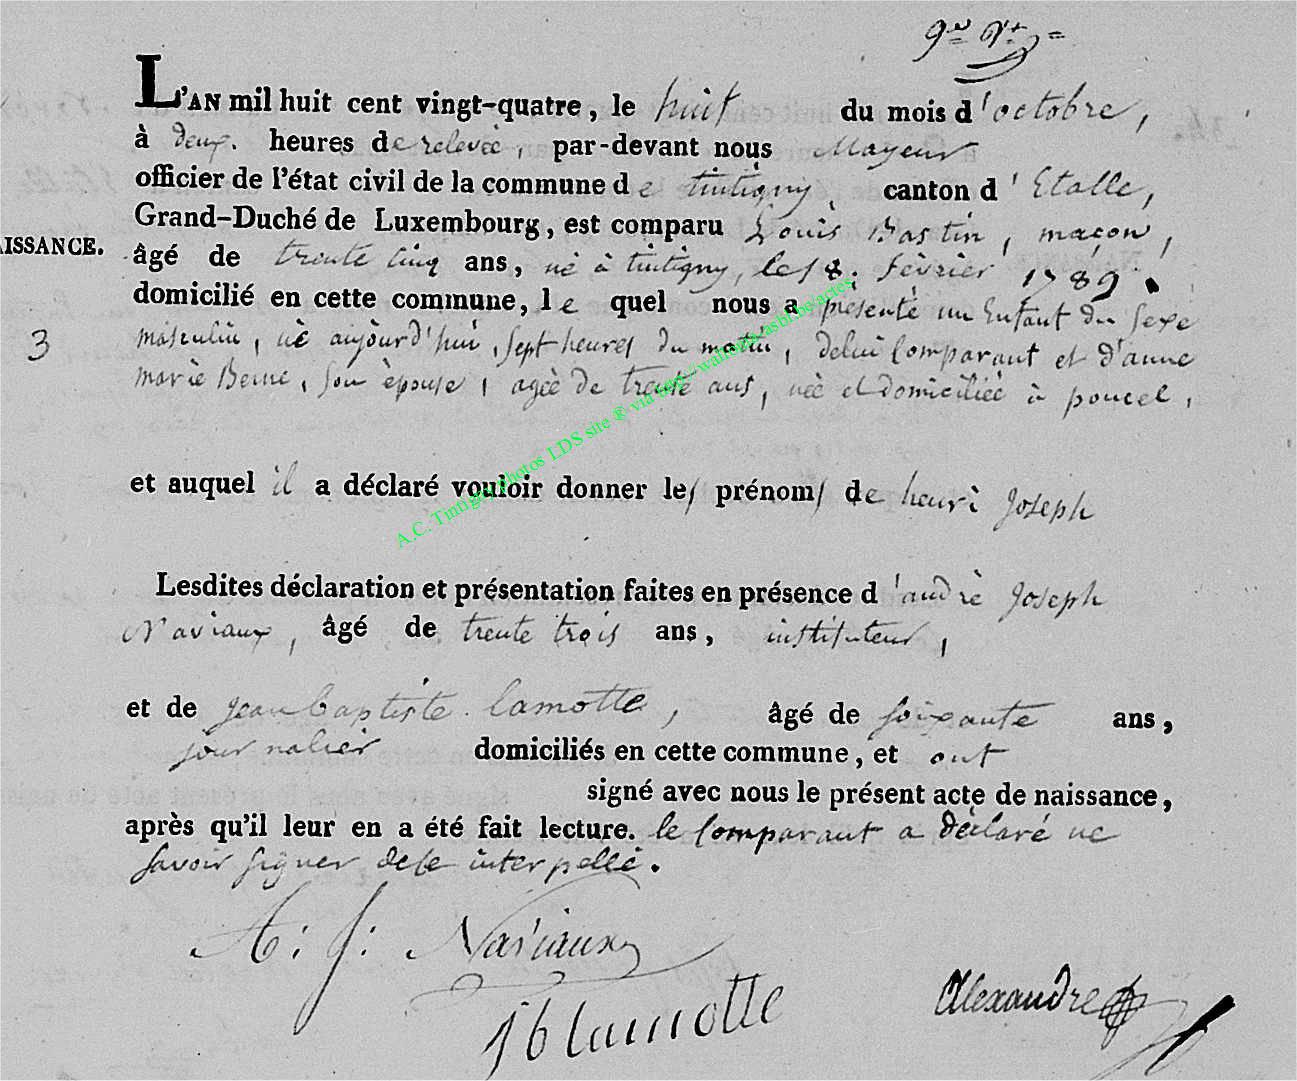 L'AN mil huit cent vingt-quatre, le huit du mois d'octobre,
à deux heures de relevée, par-devant nous Mayeur
officier de l'état civil de la commune de tintigny, canton d'Etalle,
Grand-Duché de Luxembourg, est comparu Louis Bastin, maçon,
AISSANCE.
âgé de trente cinq ans, né à tintigny, le 8. fèvrier 1789.
domicilié en cette commune, le quel nous a présenté un Enfant du sexe
3
masculin, né aujourd'hui, sept heures du matin, de lui Comparant et d'anne
marie Berne, son èpouse, agée de trente ans, née et domiciliée à poncel,
et auquel il a déclaré vouloir donner les prénoms de henri Joseph
A.C. Tintigny photos LDS site ® via http://wallonia-asbl.be/actes
Lesdites déclaration et présentation faites en présence d'andrè Joseph
Naviaux, âgé de trente trois ans, instituteur,
et de jean baptiste lamotte, âgé de soixante ans,
journalier domiciliés en cette commune, et ont
signé avec nous le présent acte de naissance,
après qu'il leur en a été fait lecture. le Comparant a déclaré ne
savoir signer de ce interpellé.
A: J: Naviaux
Jb lamotte
Alexandre